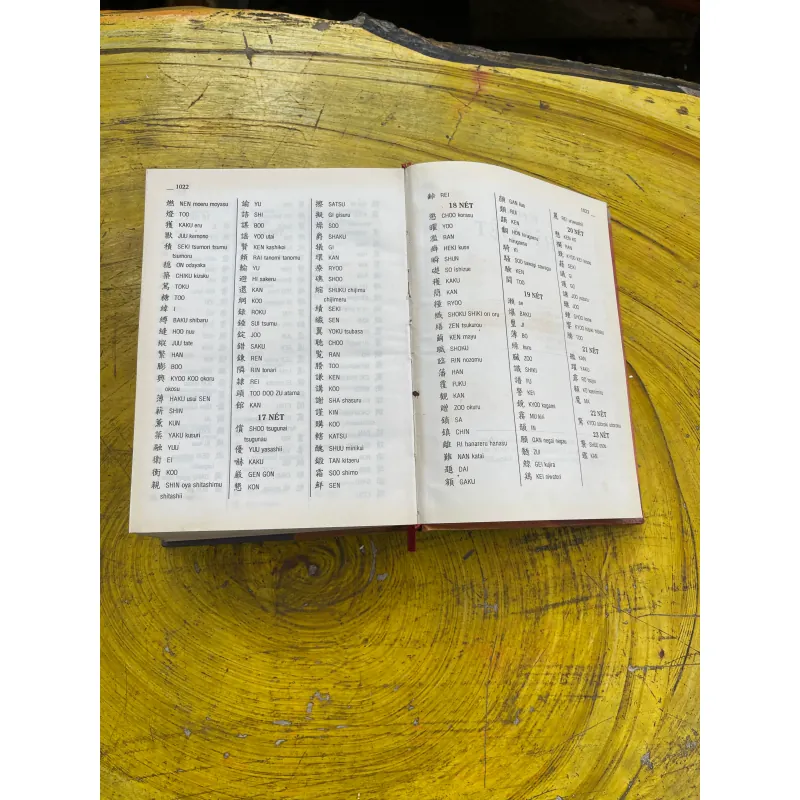 1022
燃 NEN moeru moyasu
燈 TOO
獲 KAKU eru
獣 JUU kemono
積 SEKI tsumori tsumu
tsumoru
穏 ON odayaka
築 CHIKU kizuku
篤 TOKU
糖 TOO
緯 I
縛 BAKU shibaru
縫 HOO nuu
縦 JUU tate
繁 HAN
膨 BOO
興 KYOO KOO okoru
okosu
薄 HAKU usui SEN
薪 SHIN
薫 KUN
薬 YAKU kusuri
融 YUU
衛 EI
衡 KOO
親 SHIN oya shitashimu
shitashii
諭 YU
諮 SHI
謀 BOO
謡 YOO utai
賢 KEN kashikoi
頼 RAI tanomi tanomu
輸 YU
避 HI sakeru
還 KAN
鋼 KOO
録 ROKU
錘 SUI tsumu
錠 JOO
錯 SAKU
錬 REN
隣 RIN tonari
隷 REI
頭 TOO DOO ZU atama
館 KAN
17 NÉT
償 SHOO tsugunai
tsugunau
優 YUU yasashii
嚇 KAKU
厳 GEN GON
懇 KON
擦 SATSU
擬 GI giseru
燥 SOO
爵 SHAKU
犠 GI
環 KAN
療 RYOO
礁 SHOO
縮 SHUKU chijimu
chijimeru
績 SEKI
繊 SEN
翼 YOKU tsubasa
聴 CHOO
覧 RAN
謄 TOO
謙 KEN
講 KOO
謝 SHA ayamaru
謹 KIN
購 KOO
轄 KATSU
醜 SHUU minikui
鍛 TAN kitaeru
霜 SOO shimo
鮮 SEN
齢 REI
18 NÉT
懲 CHOO korasu
曜 YOO
濫 RAN
癖 HEKI kuse
瞬 SHUN
礎 SO ishizue
穫 KAKU
簡 KAN
糧 RYOO
織 SHOKU SHIKI ori oru
繕 ZEN tsukurou
繭 KEN mayu
職 SHOKU
臨 RIN nozomu
藩 HAN
覆 FUKU
観 KAN
贈 ZOO okuru
鎖 SA
鎮 CHIN
離 RI hanareru hanasu
難 NAN katai
題 DAI
額 GAKU
顔 GAN kao
類 RUI
顕 KEN
騎 KI
騒 SOO sawagi sawagu
験 KEN
闘 TOO
19 NÉT
瀬 se
爆 BAKU
璽 JI
簿 BO
臓 ZOO
識 SHIKI
譜 FU
警 KEI
鏡 KYOO kagami
霧 MU kiri
韻 IN
願 GAN negai negau
髄 ZUI
鯨 GEI kujira
鶏 KEI niwatori
20 NÉT
21 NÉT
22 NÉT
23 NÉT